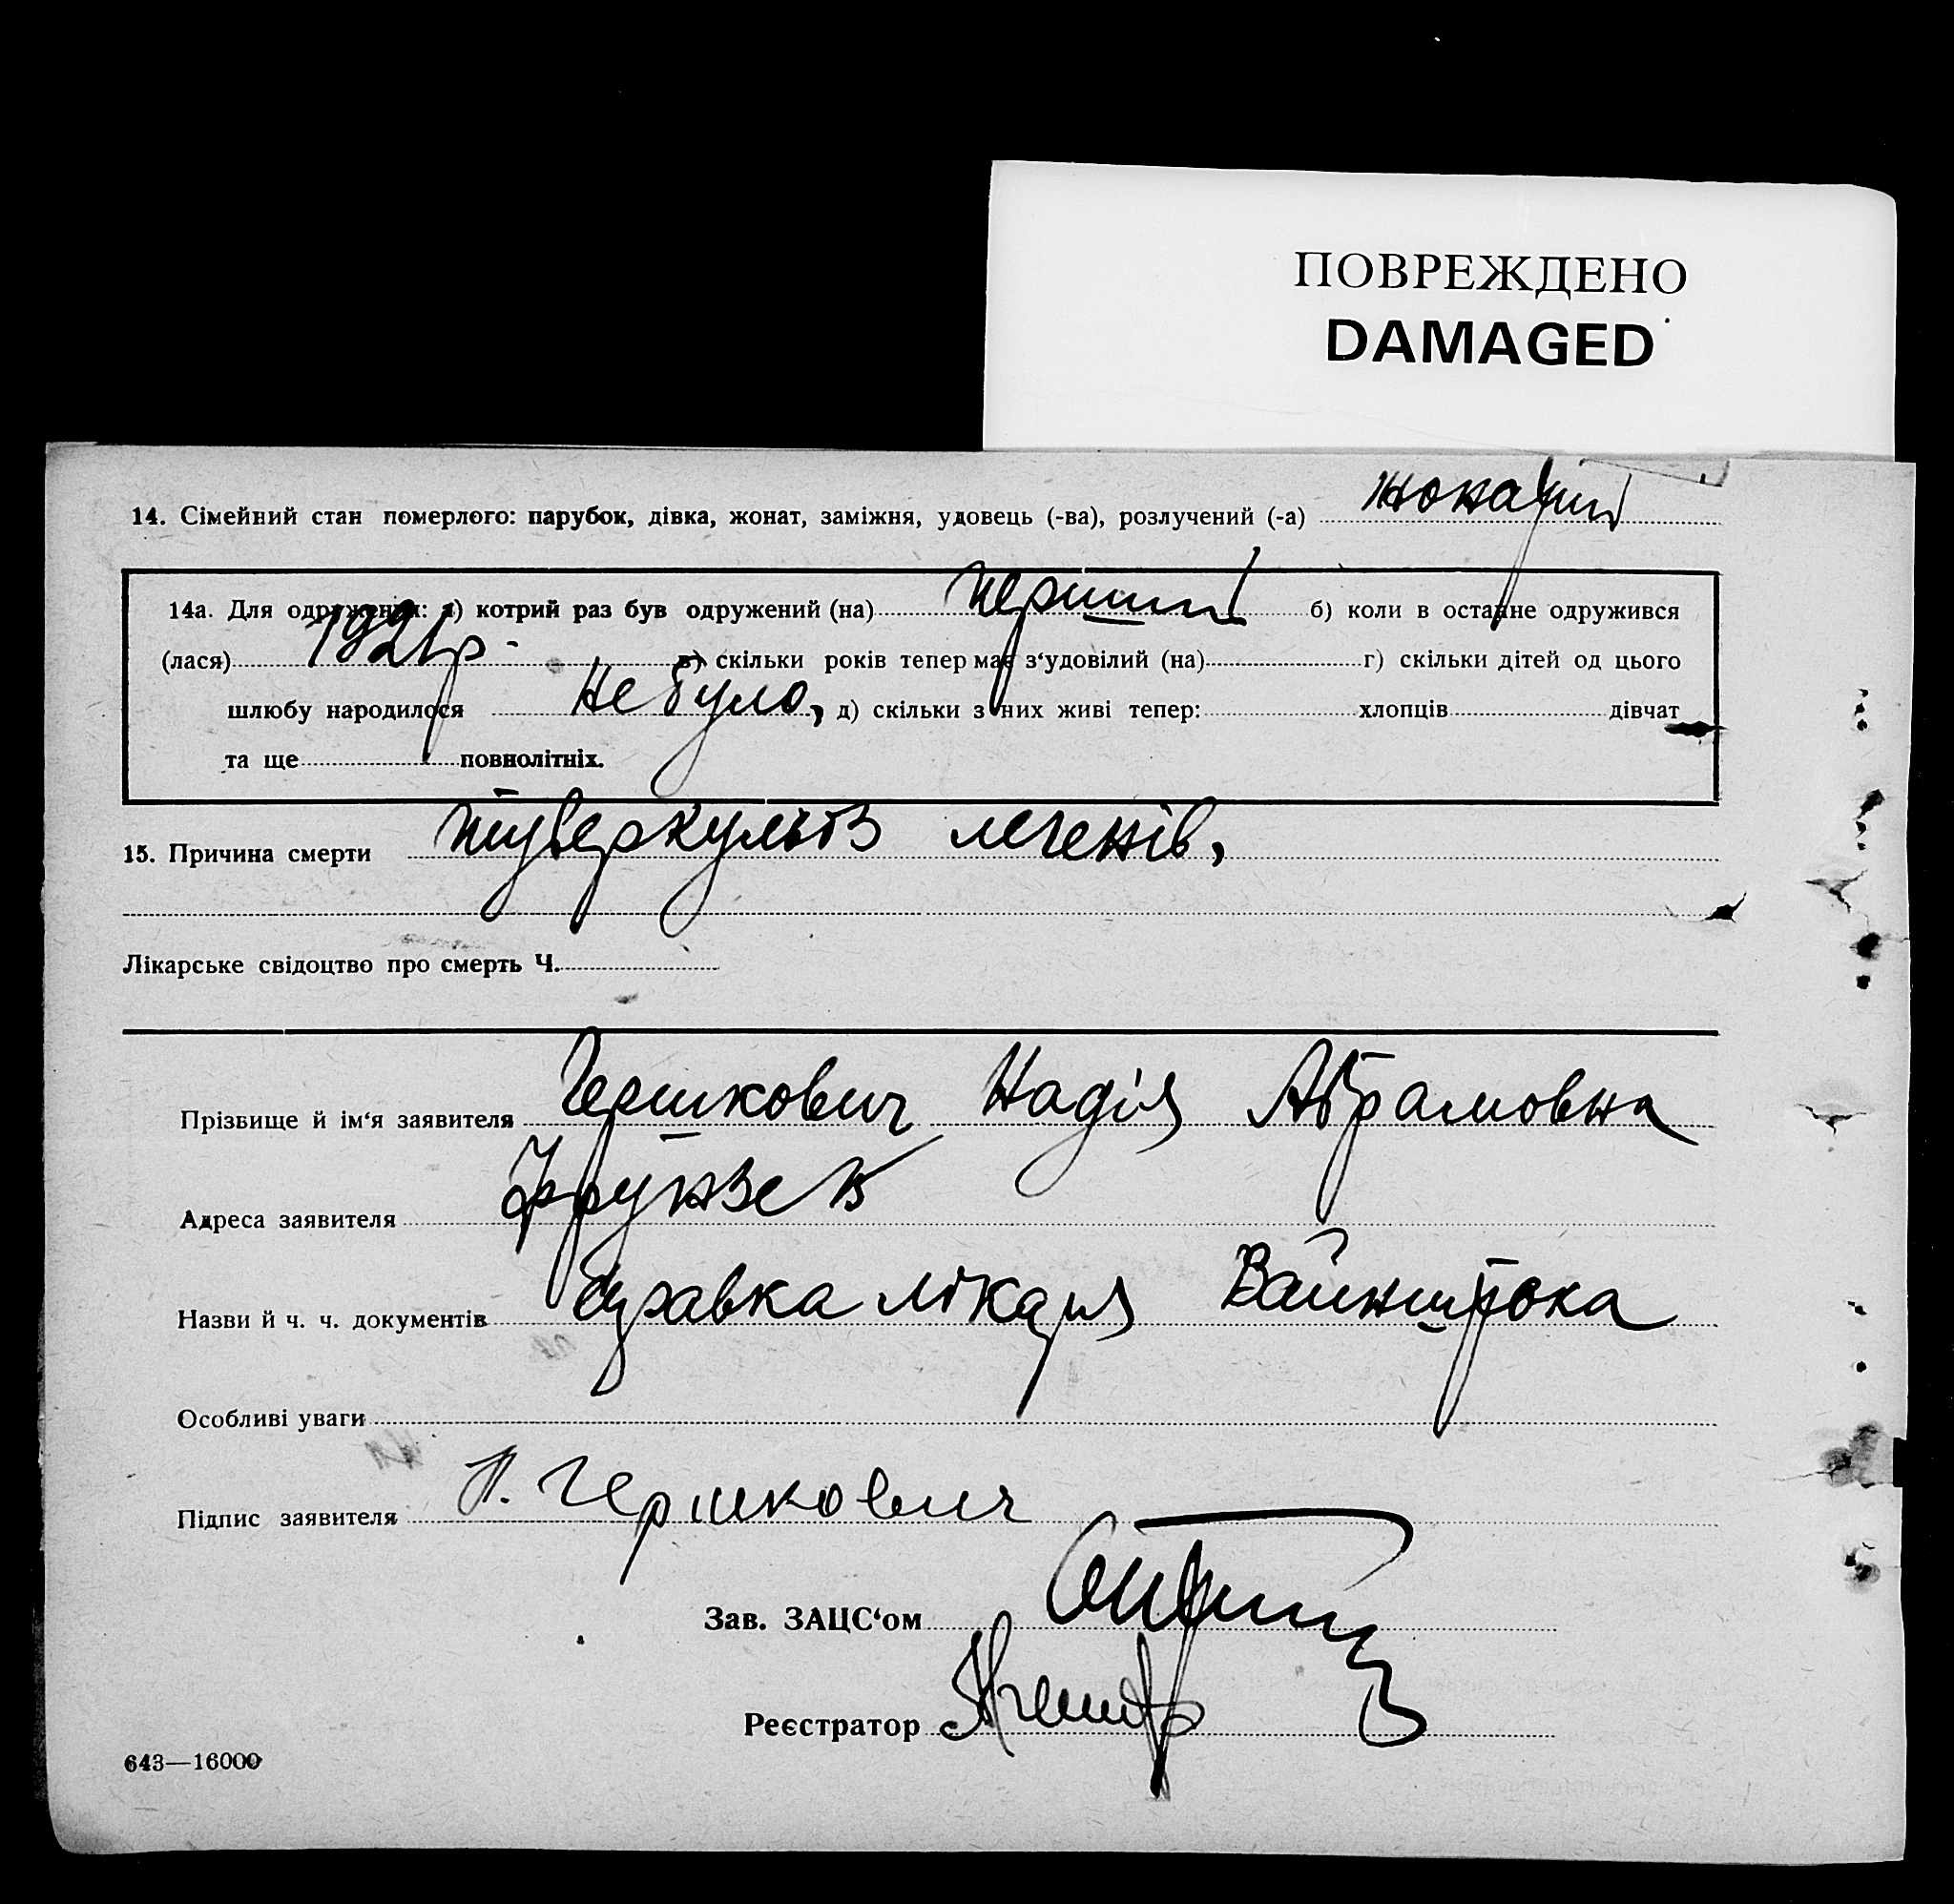 ПОВРЕЖДЕНО
DAMAGED
14. Сімейний стан померлого: парубок, дівка, жонат, заміжня, удовець (-ва), розлучений (-а) жонатий
14а. Для одруження: а) котрий раз був одружений (на) перший б) коли в останне одружився
(лася) 1921р. в) скільки років тепер має з‘удовілий (на) г) скільки дітей од цього
шлюбу народилося не було, д) скільки з них живі тепер: хлопців дівчат
та ще повнолітніх.
15. Причина смерти туберкульоз легенів,
Лікарське свідоцтво про смерть Ч.
Прізвище й ім‘я заявителя Гершкович Надія Абрамовна
Адреса заявителя Фрунзе
Назви й ч. ч. документів Справка лікаря Вайнштока
Особливі уваги
Підпис заявителя Гершкович
Зав. ЗАЦС‘ом
Реєстратор
643—16000